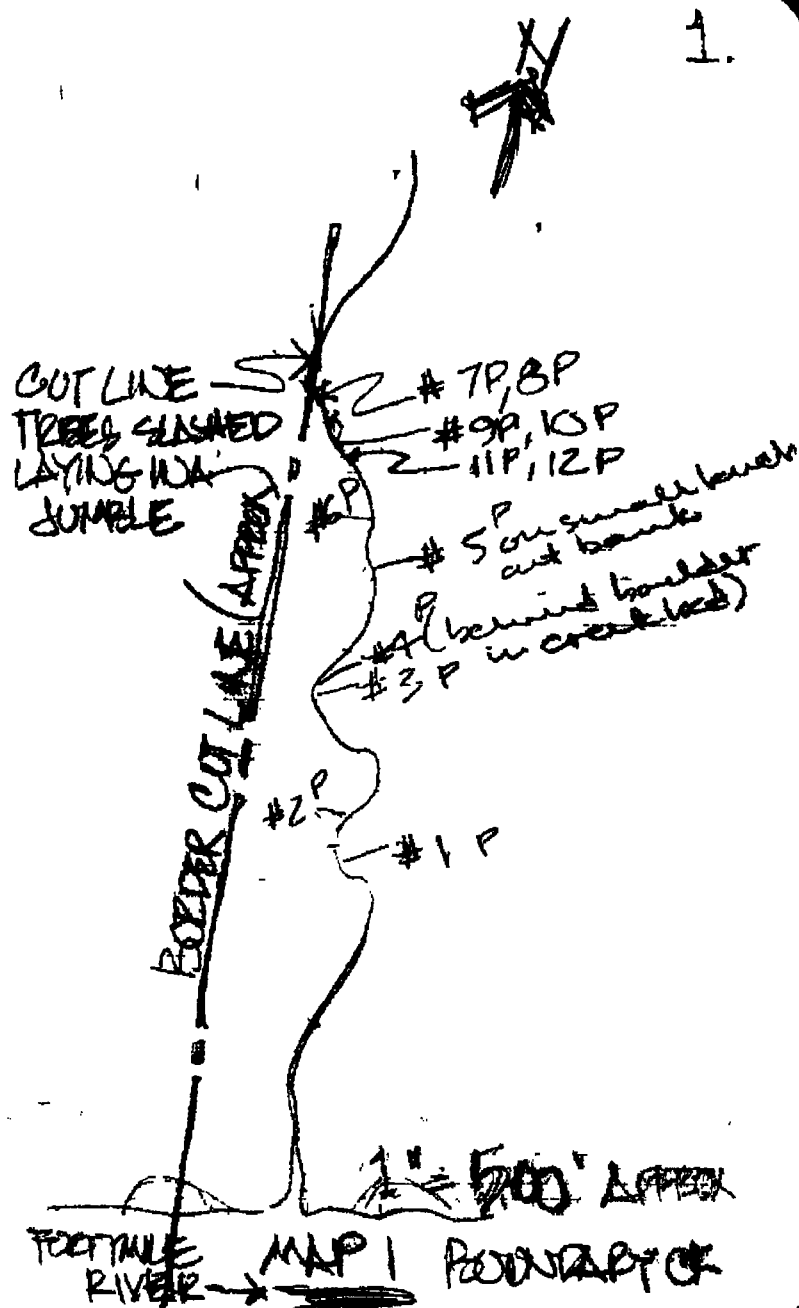 1.
N
CUT LINE
TREES SLASHED
LAYING IN A
JUMBLE
# 7P, 8P
# 9P, 10P
11P, 12P
#6P
# 5P on small bench
cut bank
#4P (behind boulder
in creek bed)
#3P
#2P
#1 P
BORDER CUT LINE (APPROX
1" = 500' APPROX
FORTYMILE
RIVER
MAP 1 BOUNDARY CK